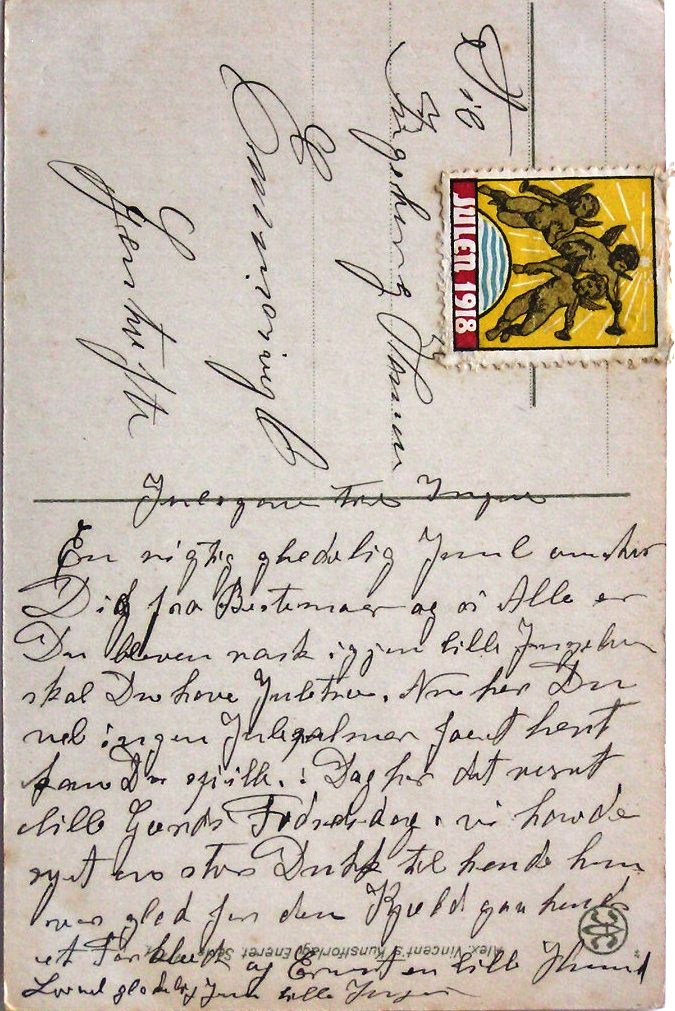 Til
Ingeborg Hansen
Gentofte
JULEN 1918
En rigtig glædelig Juul
Dig fra Bestemoer og os Alle er
Du bleven rask igjen lille Ingeborg
skal Du have Juletræ. Nu har Du
vel ingen Julepalmer faaet hørt
kan Du spille. i Dag har det været
lille Gerds Fødselsdag. vi havde
syet en stor Dukke til hende hun
var glad for den
et Forklæde og Ernst en lille Hund
glædelig Juul lille
Alex. Vincent's Kunstforlag, Eneret